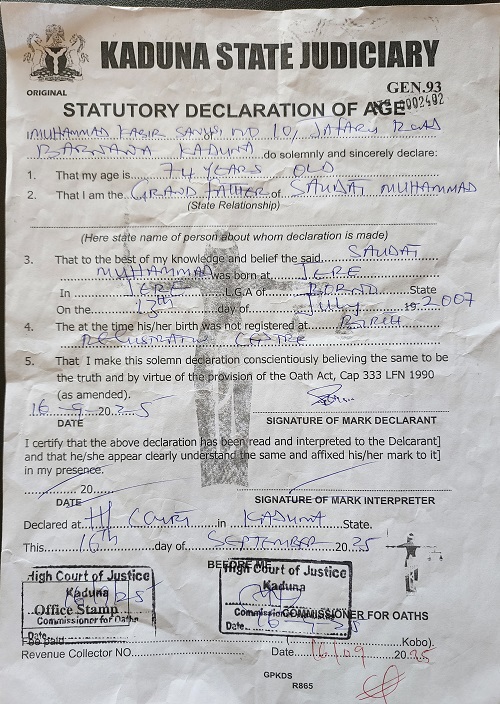 KADUNA STATE JUDICIARY
ORIGINAL
GEN.93
STATUTORY DECLARATION OF AGE
0002492
I MUHAMMAD KABIR SANUSI of NO 10, JAFARU ROAD
BARNAWA KADUNA do solemnly and sincerely declare:
1. That my age is 74 YEARS OLD
2. That I am the GRAND FATHER of SAUDAT MUHAMMAD
(State Relationship)
(Here state name of person about whom declaration is made)
3. That to the best of my knowledge and belief the said SAUDAT
MUHAMMAD was born at JERE
In JERE L.G.A of BORNO State
On the 13th day of July 19 2007
4. The at the time his/her birth was not registered at BIRTH
REGISTRATION CENTRE
5. That I make this solemn declaration conscientiously believing the same to be
the truth and by virtue of the provision of the Oath Act, Cap 333 LFN 1990
(as amended).
16-9-2025
DATE
SIGNATURE OF MARK DECLARANT
I certify that the above declaration has been read and interpreted to the Delcarant]
and that he/she appear clearly understand the same and affixed his/her mark to it]
in my presence.
20
DATE
SIGNATURE OF MARK INTERPRETER
Declared at H COURT in KADUNA State.
This 16th day of SEPTEMBER 2025
BEFORE ME
High Court of Justice
Kaduna
Office Stamp
Commissioner for Oaths
Date
High Court of Justice
Kaduna
Date 16-9-25
COMMISSIONER FOR OATHS
Fee paid (Kobo)
Revenue Collector NO Date 16/09 2025
GPKDS
R865